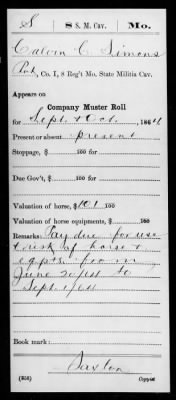 S | 8 S. M. Cav. | Mo.
Calvin C. Simons
Pvt., Co. I, 8 Reg't Mo. State Militia Cav.
Appears on
Company Muster Roll
for Sept. & Oct., 1864
Present or absent present
Stoppage, $ 100 for
Due Gov't, $ 100 for
Valuation of horse, $ 101 100
Valuation of horse equipments, $ 100
Remarks: Pay due for use
& risk of horse &
eqpts. from
June 20/64 to
Sept. 1/64
Book mark:
Saxton
(858) Copyist